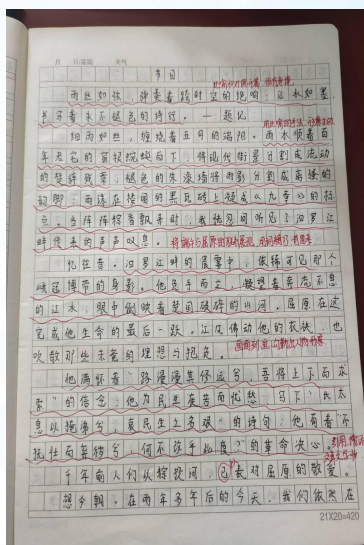 月 日/星期 天气
节日
雨丝如弦，弹奏着跨时空的绝响；江水如墨，
书写着永不褪色的诗行。 —题记
细雨如丝，缠绕着五月的汨阳。雨水顺着百
年老宅的窗棂蜿蜒而下，将现代街景分割成流动
的楚辞残章。褪色的朱漆墙将雨影分割成离骚的
韵脚，雨珠在檐角的黑瓦砖上凝成《九章》的标
点。当阵阵粽香飘来时，我恍忽间听见了汨罗江
畔传来的声声叹息。
将端午与屈原的
忆往昔，汨罗江畔的晨雾中，依稀可见那个
峨冠博带的身影。他负手而立，凝望着奔流不息
的江水，眼中倒映着楚国破碎的山河。屈原在这
完成他生命的最后一跃。江风拂动他的衣袂，也
吹散那些未竟的理想与抱负。
他满怀着“路漫漫其修远兮，吾将上下而求
索”的信念；他为民生哀苦而忧愁，写下“长太
息以掩涕兮，哀民生之多艰”的诗句；他有着“不
抚壮而弃秽兮，何不改乎此度？”的革命决心。
引用
千年前人们以粽投河，已表对屈原的敬爱。
想今朝，在两千多年后的今天，我们依然在
21X20=420